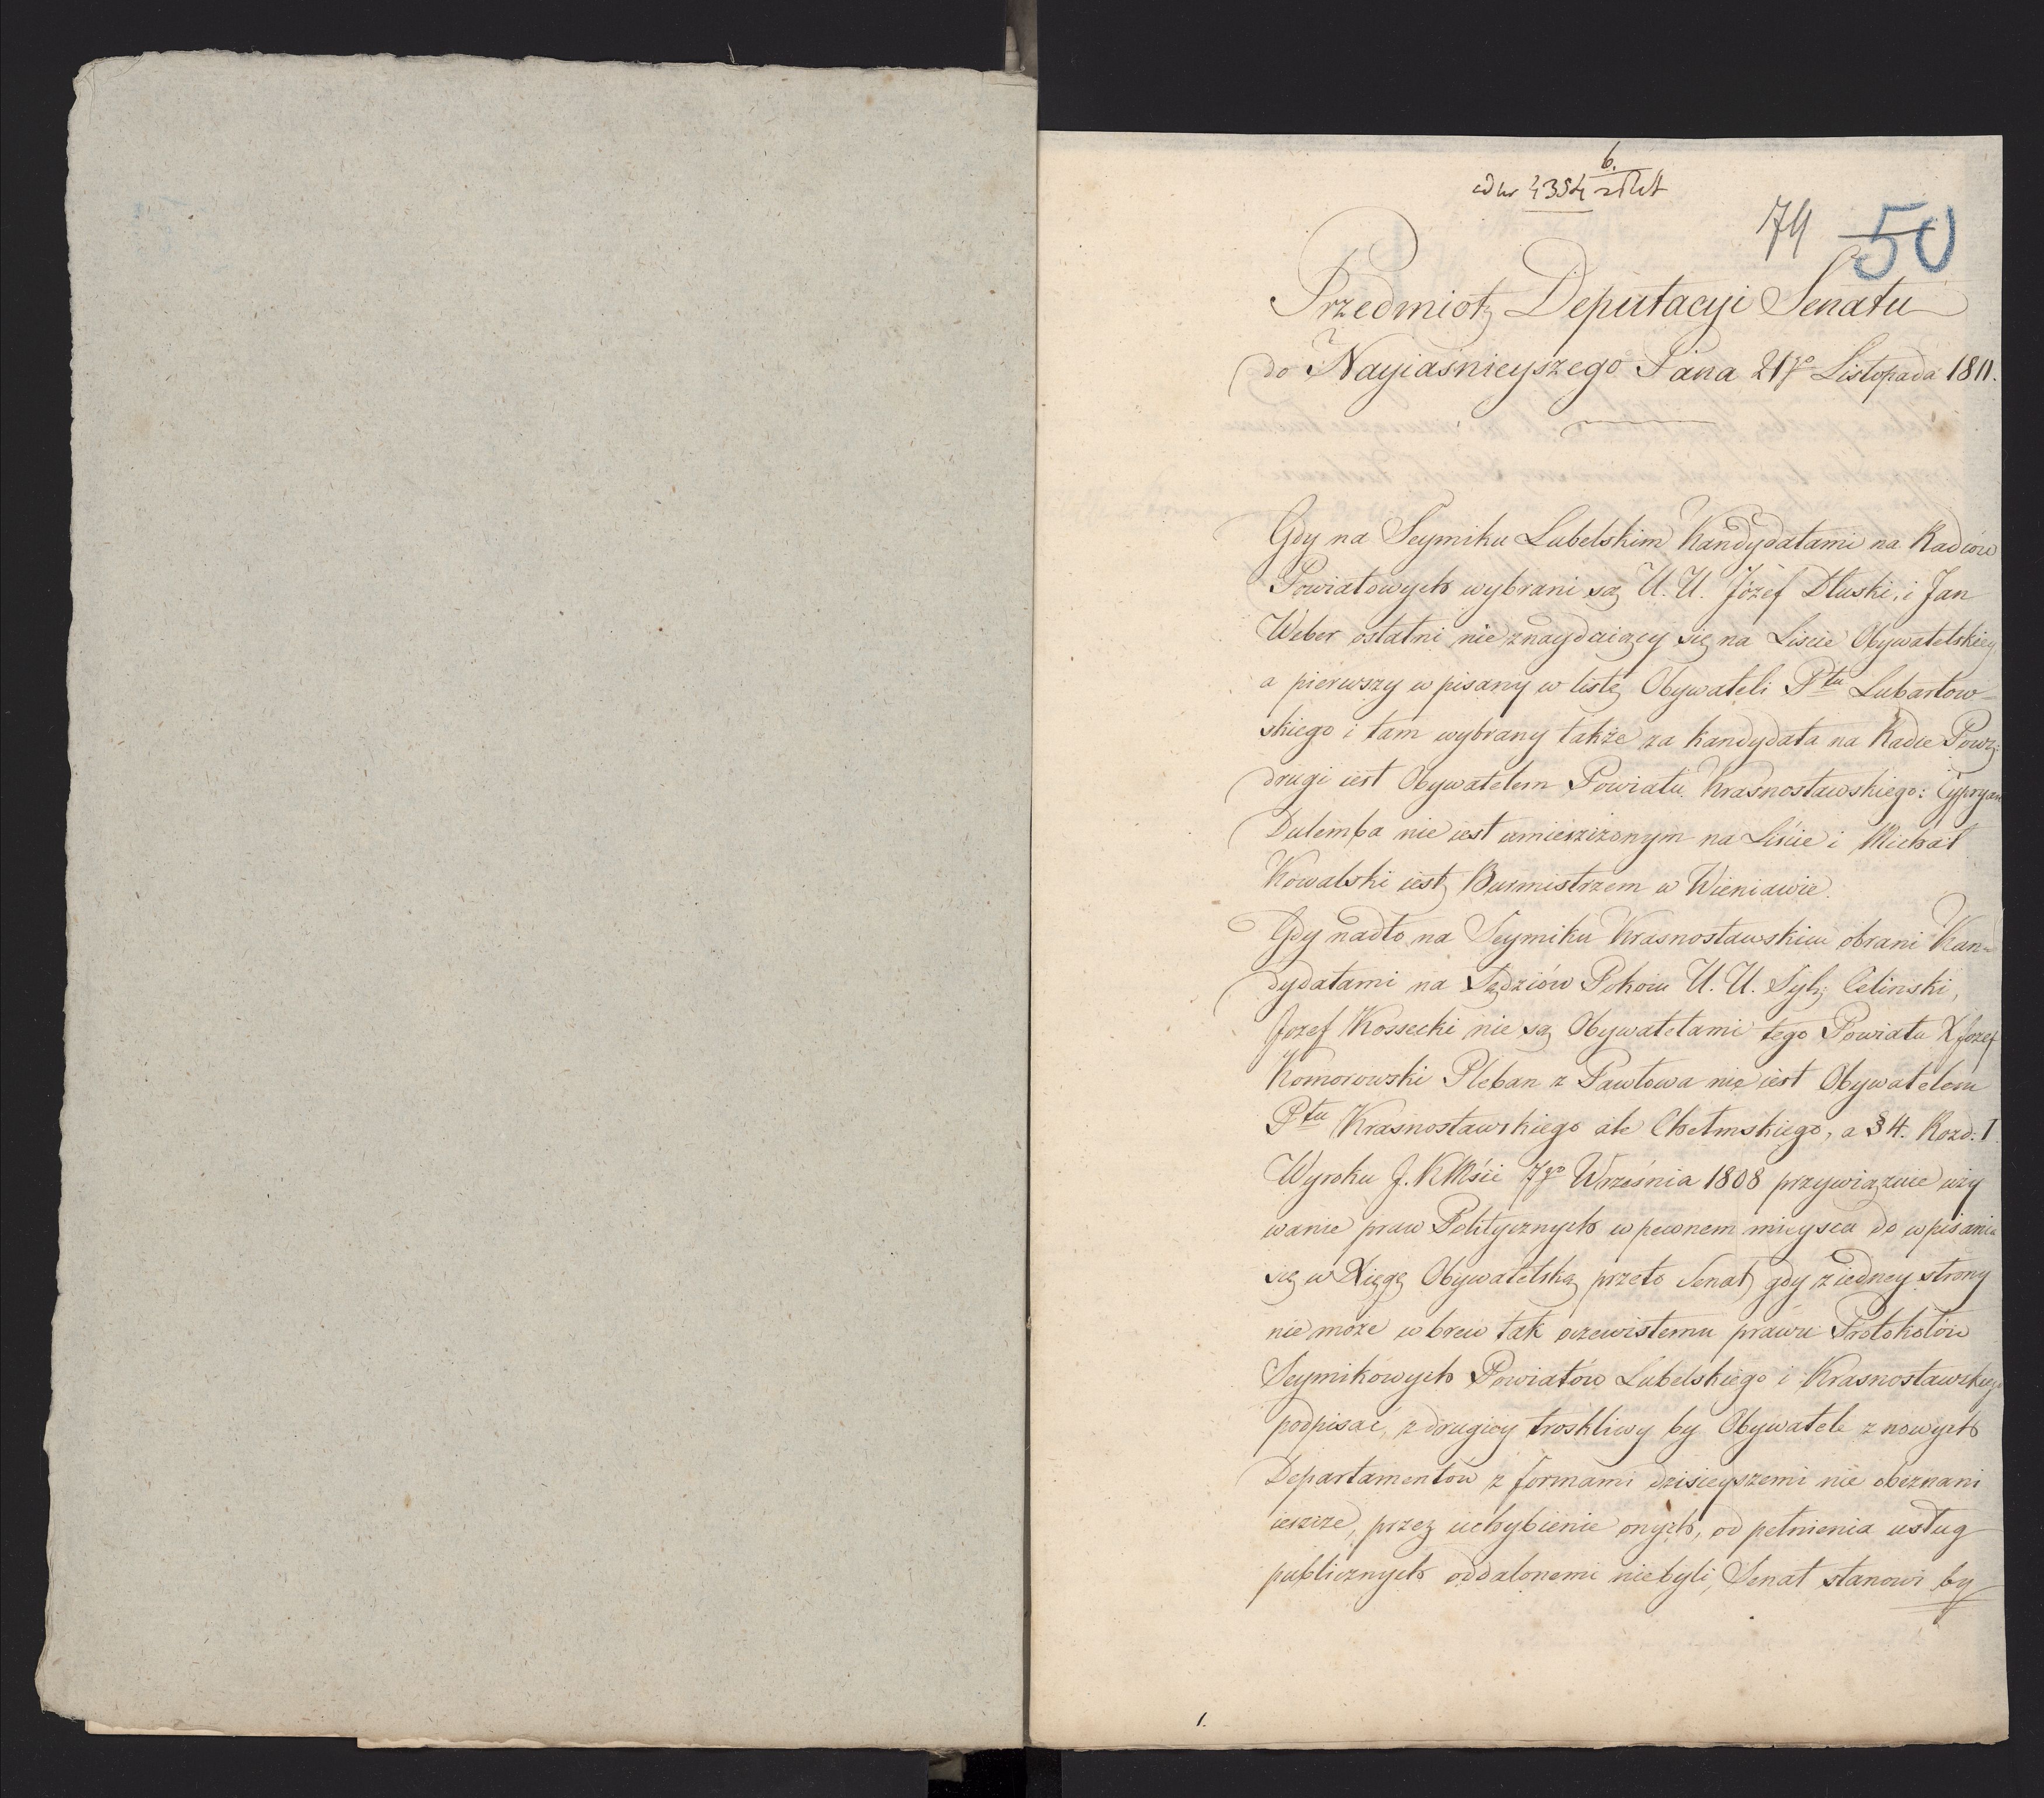 6.
74 50
Przedmiot Deputacyi Senatu
do Nayiaśnieyszego Pana 21go Listopada 1811.
Gdy na Seymiku Lubelskim Kandydatami na Radców
Powiatowych wybrani są U. U. Józef Dłuski, i Jan
Weber ostatni nie znayduiący się na Liscie Obywatelskiey
a pierwszy wpisany w listę Obywateli Ptu Lubartow-
skiego i tam wybrany także za kandydata na Radcę Pow:
drugi iest Obywatelem Powiatu Krasnostawskiego: Cypryan
Dulemba nie iest umieszczonym na Liście i Michał
Kowalski iest Burmistrzem w Wieniawie.
Gdy nadto na Seymiku Krasnostawskim obrani Kan-
dydatami na Sędziów Pokoiu U. U. Syl: Celinski,
Jozef Kossecki nie są Obywatelami tego Powiatu X Jozef
Komorowski Pleban z Pawłowa nie iest Obywatelem
Ptu Krasnostawskiego ale Chełmskiego, a § 4. Rozd: I.
Wyroku J. K Mści 7go Września 1808 przywiązuie uży
wanie praw Politycznych w pewnem mieyscu do wpisania
się w Xięgę Obywatelską przeto Senat gdy z iedney strony
nie może wbrew tak oczewistemu prawu Protokołów
Seymikowych Powiatów Lubelskiego i Krasnostawskiego
podpisać, z drugiey troskliwy by Obywatele z nowych
Departamentów z formami dzisieyszemi nie obeznani
ieszcze, przez uchybienie onych, od pełnienia usług
publicznych oddalonemi niebyli, Senat stanowi by
1.